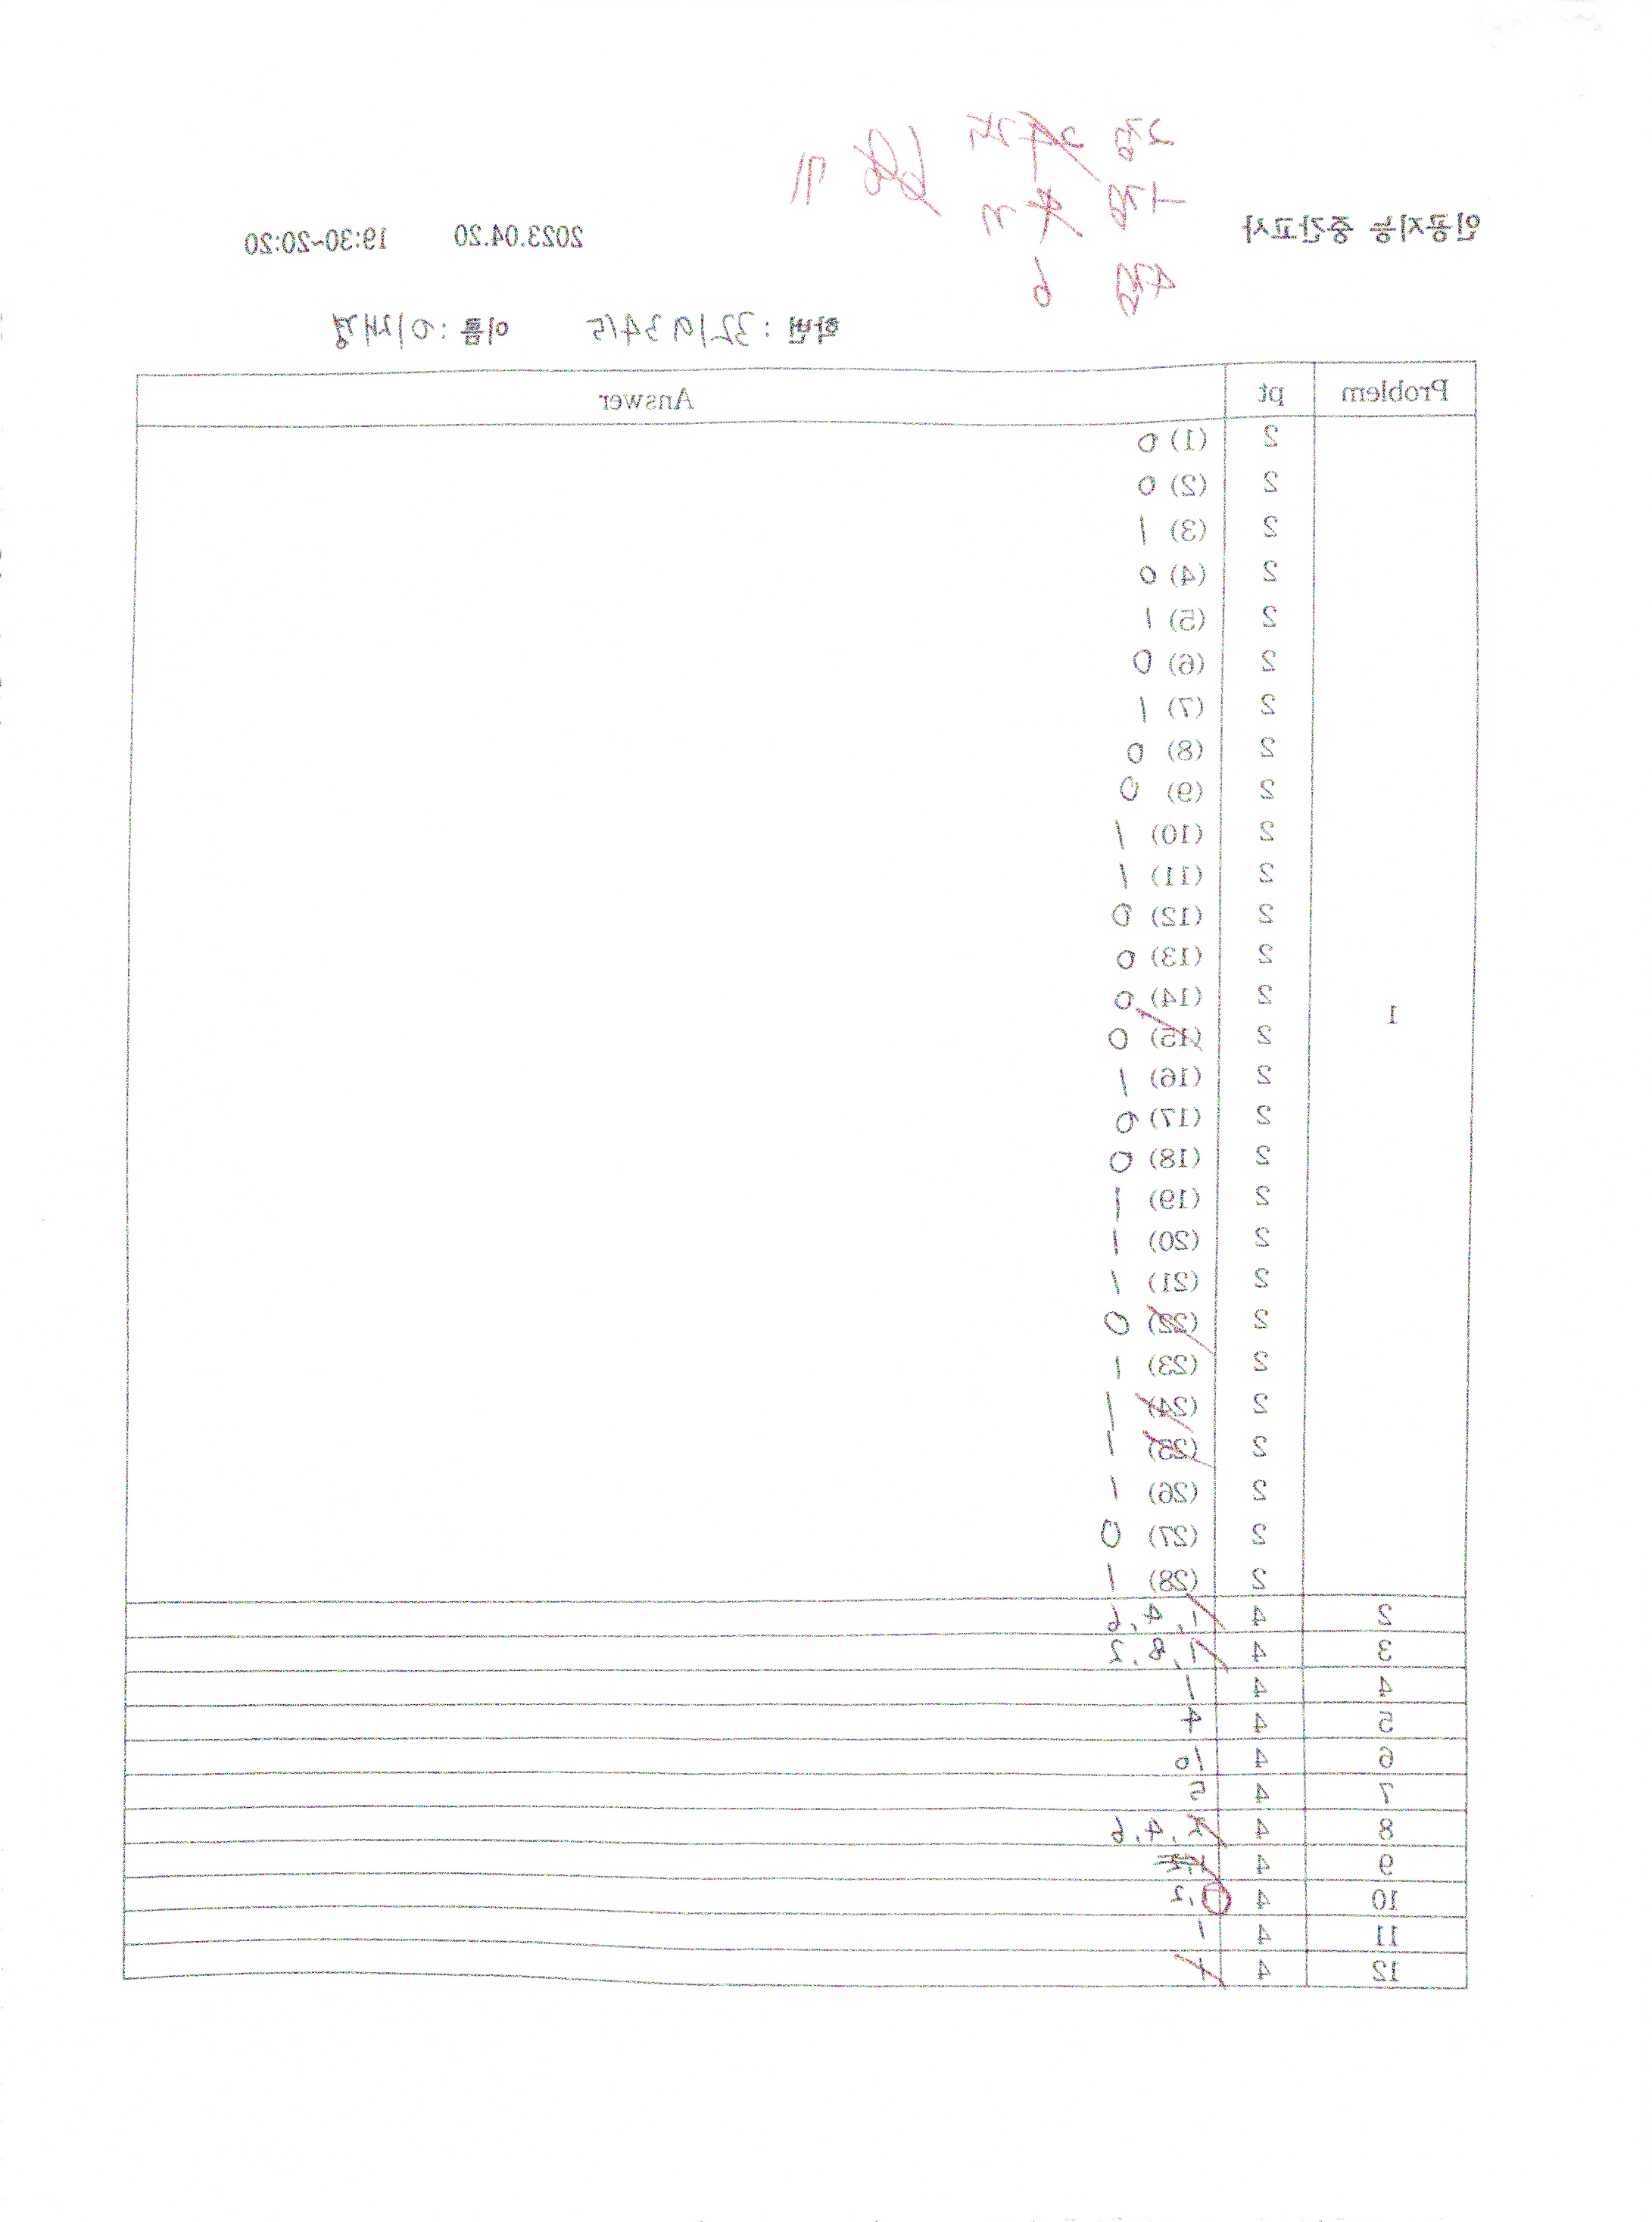 2점 24 24
1점 4 3 77
인공지능 중간고사 2023.04.20 19:30~20:20
4점 6
학번 : 32193415 이름 : 이재경
Problem pt Answer
2 (1) 0
2 (2) 0
2 (3) 1
2 (4) 0
2 (5) 1
2 (6) 0
2 (7) 1
2 (8) 0
2 (9) 0
2 (10) 1
2 (11) 1
2 (12) 0
2 (13) 0
2 (14) 0
1 2 (15) 0
2 (16) 1
2 (17) 0
2 (18) 0
2 (19) 1
2 (20) 1
2 (21) 1
2 (22) 0
2 (23) 1
2 (24) 1
2 (25) 1
2 (26) 1
2 (27) 0
2 (28) 1
2 4 1, 4, 6
3 4 7, 8, 2
4 4 1
5 4 4
6 4 10
7 4 5
8 4 2, 4, 6
9 4
10 4 1, 2
11 4 1
12 4 1